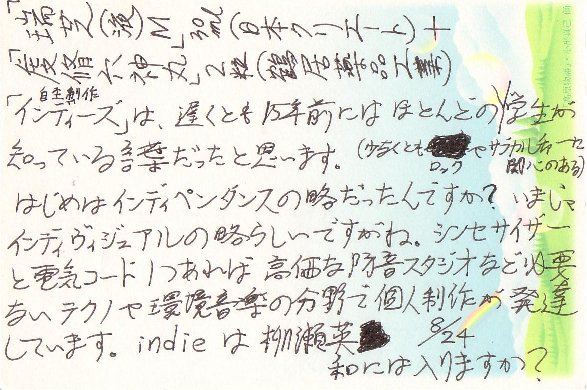 「瑞芝(液M)」30ml(日本クリエート)+
「伏脩六神丸」2粒(鶴居薬品工業)
自主制作
「インディーズ」は、遅くとも15年前にはほとんどの学生が
知っている言葉だったと思います。(少なくともロックやサブカルチャーに関心のある)
はじめはインディペンダンスの略だったんですか?いまじゃ
インディヴィジュアルの略らしいですがね。シンセサイザー
と電気コード1つあれば高価な防音スタジオなど必要
ないテクノや環境音楽の分野で個人制作が発達
しています。indieは柳瀬英
8/24
和には入りますか?